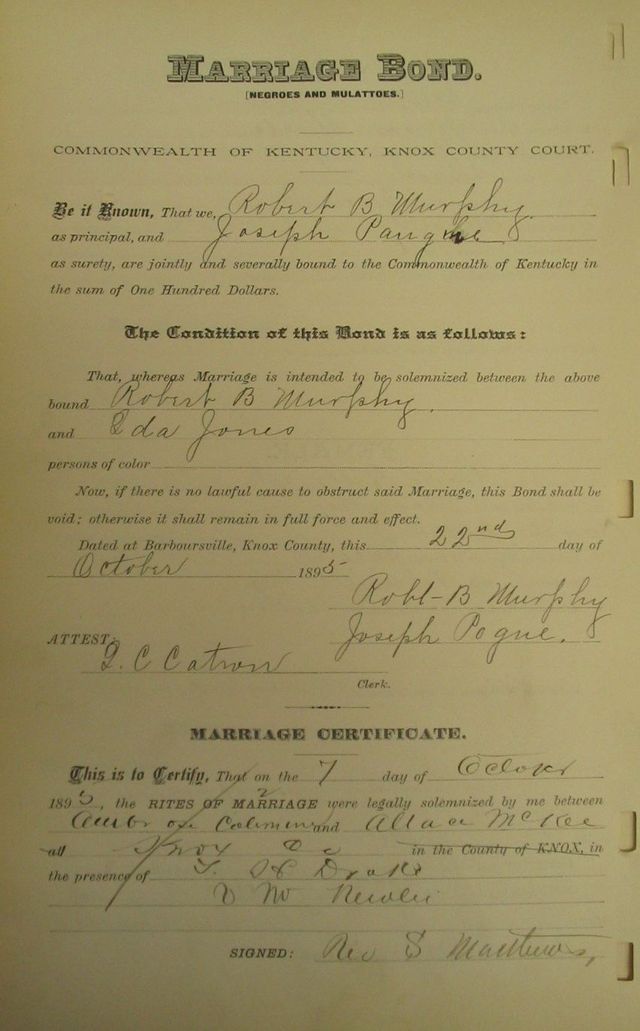 MARRIAGE BOND.
[NEGROES AND MULATTOES.]
COMMONWEALTH OF KENTUCKY, KNOX COUNTY COURT.
Be it Known, That we, Robert B Murphy
as principal, and Joseph
as surety, are jointly and severally bound to the Commonwealth of Kentucky in
the sum of One Hundred Dollars.
The Condition of this Bond is as follows:
That, whereas Marriage is intended to be solemnized between the above
bound Robert B Murphy.
and Eda Jones
persons of color
Now, if there is no lawful cause to obstruct said Marriage, this Bond shall be
void; otherwise it shall remain in full force and effect.
Dated at Barboursville, Knox County, this 22nd day of
October 1895
Robt B Murphy
Joseph Pogue.
ATTEST:
C Catron
Clerk.
MARRIAGE CERTIFICATE.
This is to Certify, That on the 7 day of
189, the RITES OF MARRIAGE were legally solemnized by me between
and McKee
at Knox in the County of KNOX, in
the presence of
SIGNED: Rev S Matthews,